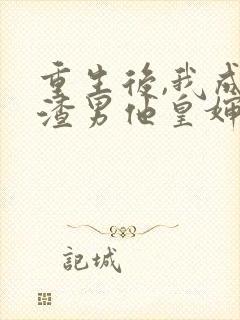 重生後,我成
渣男他皇嬸
記城